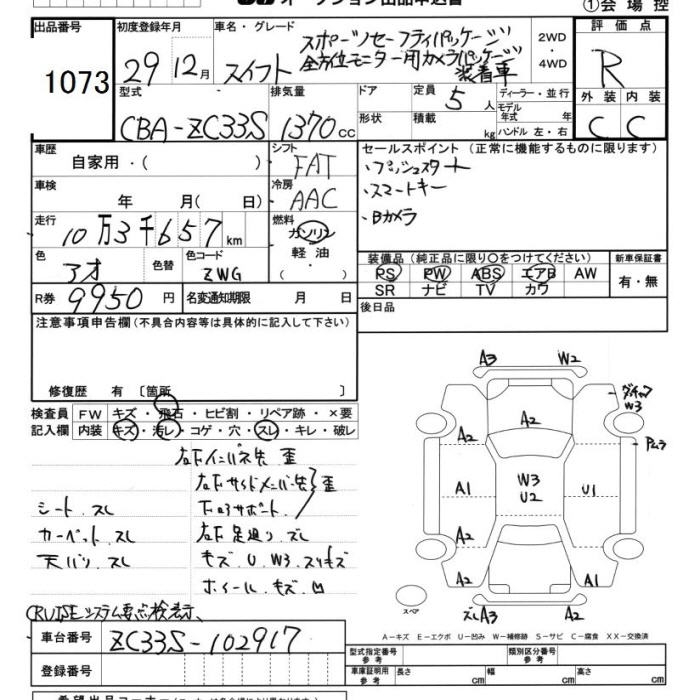 オークション出品申込書
①会場控
出品番号 初度登録年月 車名・グレード 2WD・4WD 評価点
1073 29年12月 スイフト スポーツ セーフティパッケージ
全方位モニター用カメラパッケージ
装着車 R
型式 排気量 ドア 定員 5人 ディーラー・並行 外装 内装
CBA-ZC33S 1370cc 形状 積載 kg モデル年式 年 ハンドル 左・右 C C
車歴 自家用・( ) シフト FAT セールスポイント (正常に機能するものに限ります)
・プッシュスタート
車検 年 月( 日) 冷房 AAC ・スマートキー
・Bカメラ
走行 10万3千657km 燃料 ガソリン 軽油 ・( )
装備品(純正品に限り○をつけてください) 新車保証書
色 アオ 色替 色コード ZWG PS PW ABS エアB AW 有・無
SR ナビ TV カワ
R券 9950円 名変通知期限 月 日 後日品
注意事項申告欄(不具合内容等は具体的に記入して下さい)
修復歴 有 〔箇所 〕
検査員 FW キズ・飛石・ヒビ割・リペア跡・×要
記入欄 内装 キズ・汚レ・コゲ・穴・スレ・キレ・破レ
右下インパネ先 歪
右下サイドメンバー先 歪
シート スレ 下ロアサポート
カーペット スレ 右下足廻リ ズレ
天バリ スレ キズ U W3 スリキズ
ホイール キズ 凹
CRUISEシステム要点検表示
A3 W2
ダイヤ W3
A2
A2 アムラ
A1 W3 U2 U1
A2
A2 A2 A1
スペア ズレA3 A2
A－キズ E－エクボ U－凹み W－補修跡 S－サビ C－腐食 XX－交換済
車台番号 ZC33S-102917
型式指定番号 参考 類別区分番号 参考
登録番号 車庫証明用 参考 長さ cm 幅 cm 高さ cm